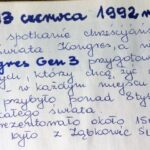 3 czerwca 1992 r
spotkanie chrześcijańs
świata Kongres, a w
gres Gen 3 przygotow
którzy chcą, żyć
w każdym miejscu
przybyło ponad 8 tys
całego świata
rezentowało około 150
było z Ząbkowic Śl